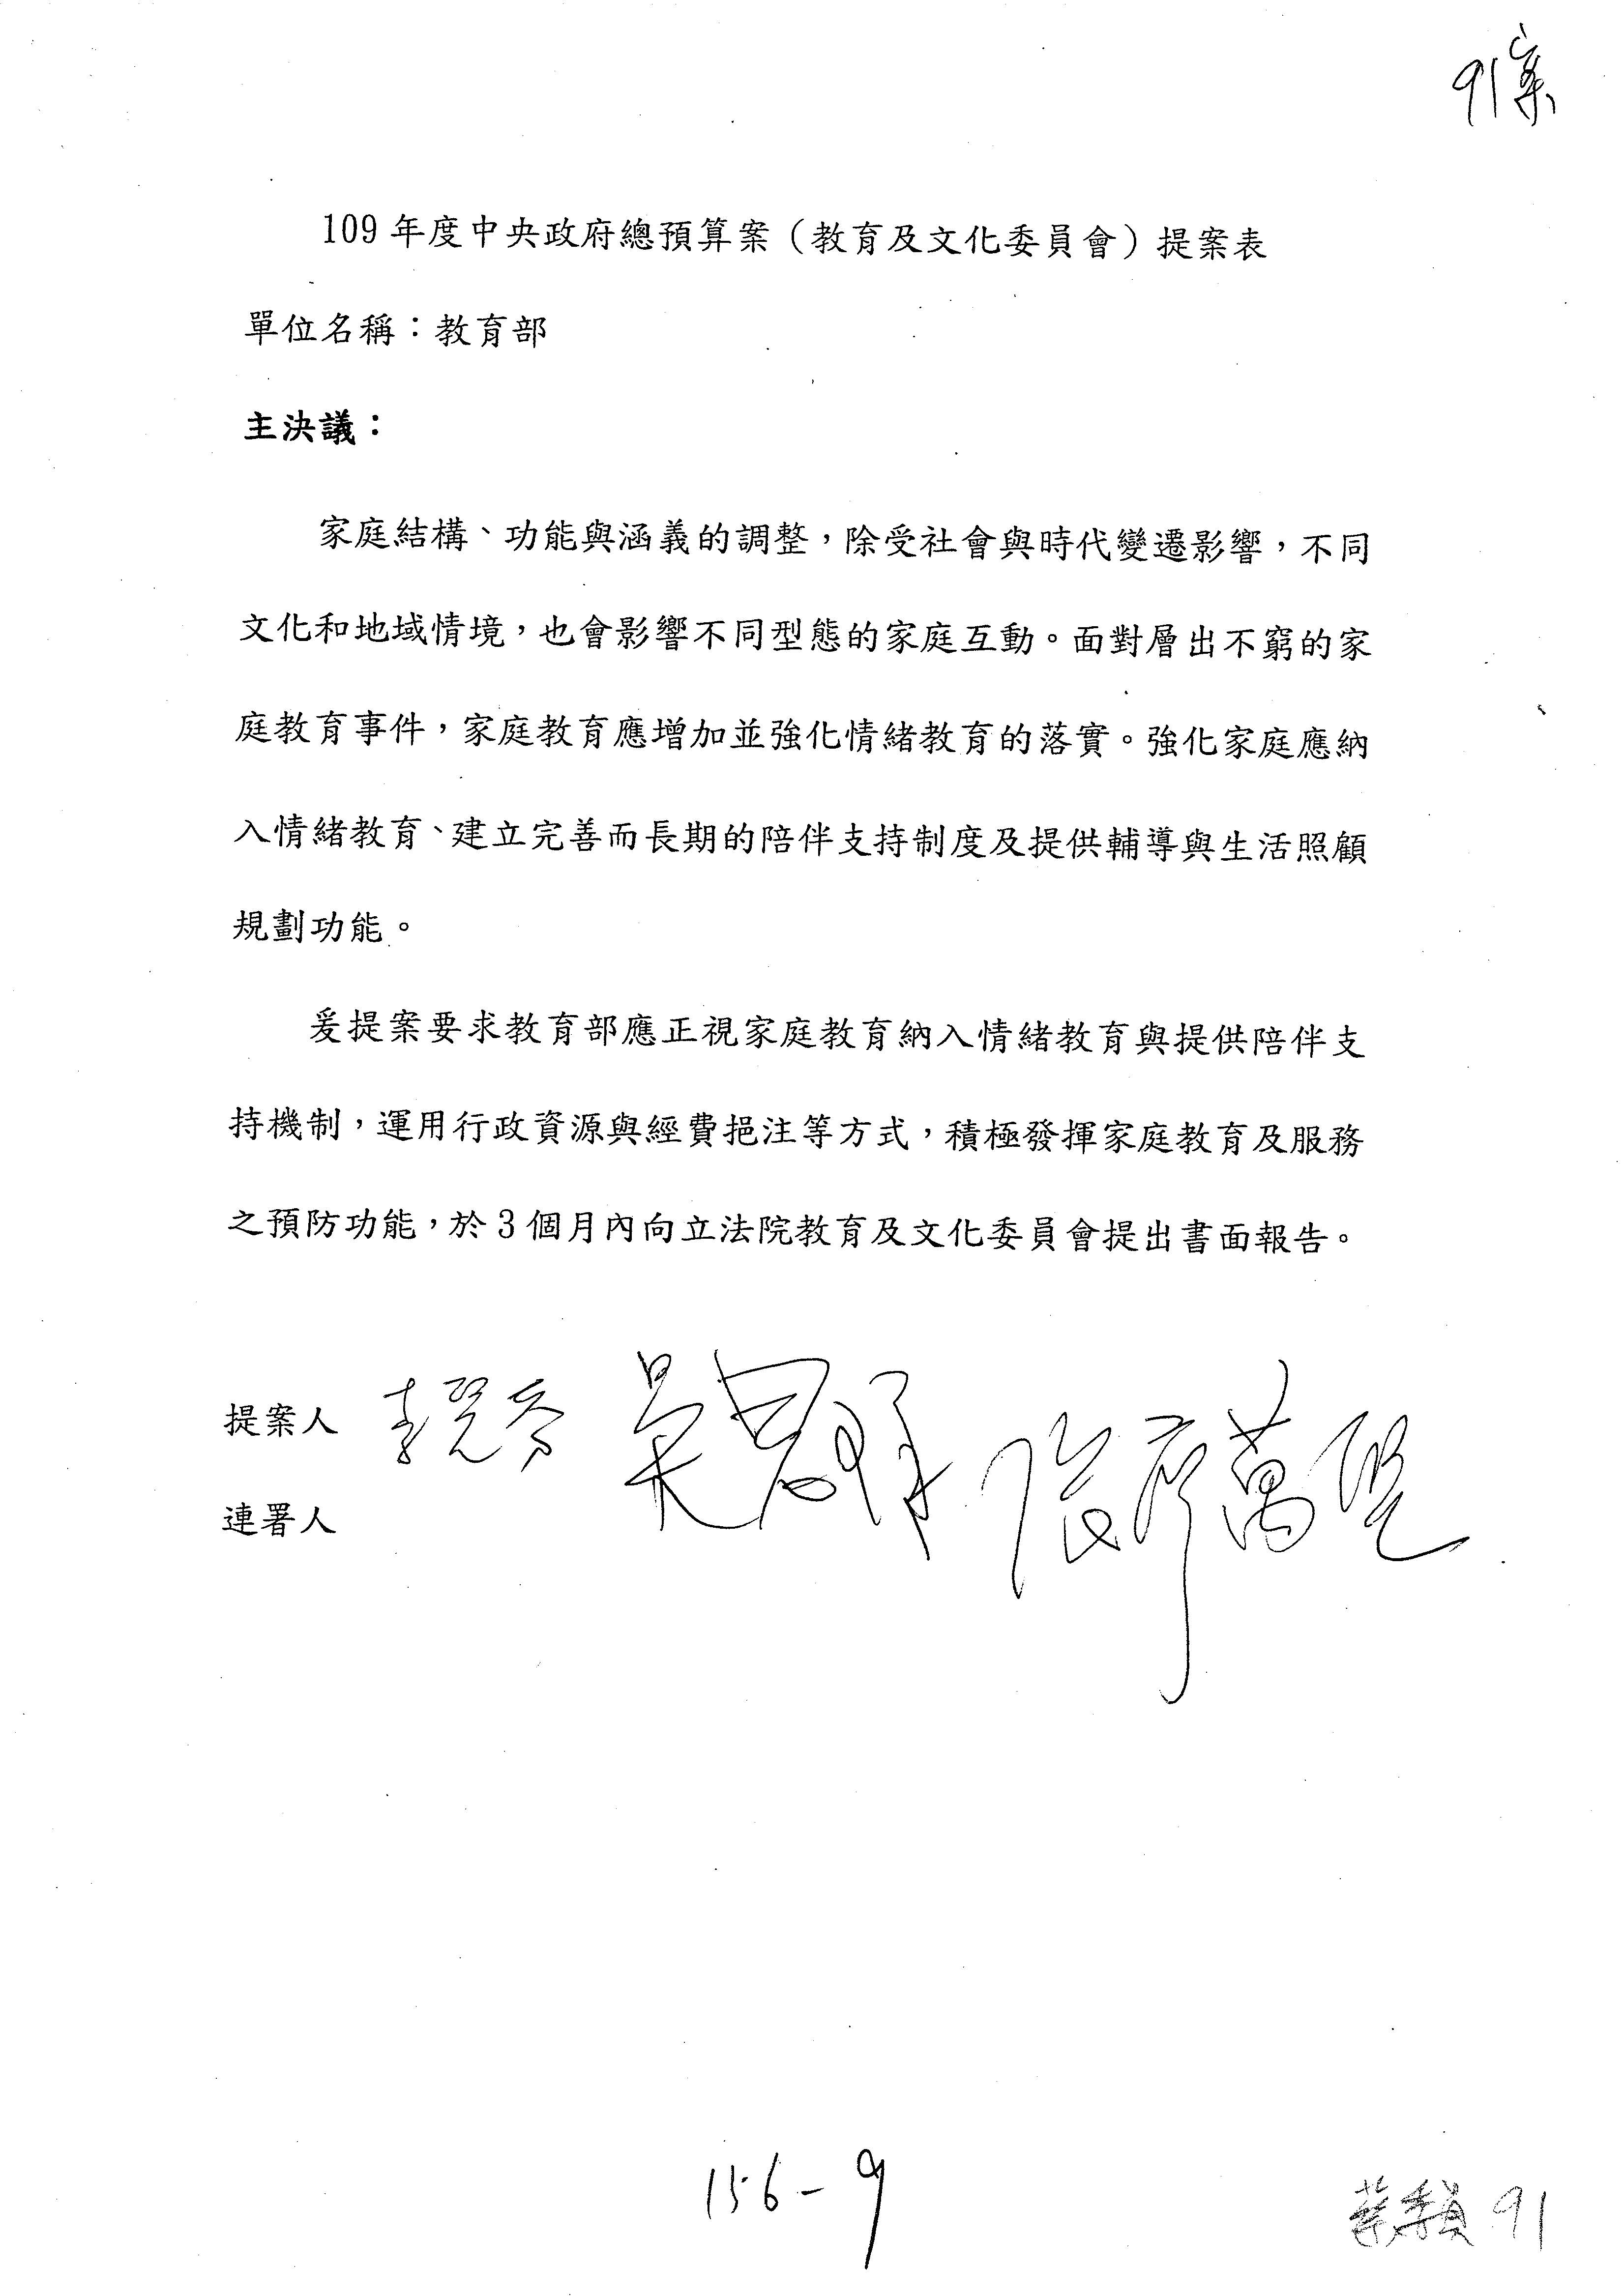 91案
109年度中央政府總預算案（教育及文化委員會）提案表
單位名稱：教育部
主決議：
家庭結構、功能與涵義的調整，除受社會與時代變遷影響，不同
文化和地域情境，也會影響不同型態的家庭互動。面對層出不窮的家
庭教育事件，家庭教育應增加並強化情緒教育的落實。強化家庭應納
入情緒教育、建立完善而長期的陪伴支持制度及提供輔導與生活照顧
規劃功能。
爰提案要求教育部應正視家庭教育納入情緒教育與提供陪伴支
持機制，運用行政資源與經費挹注等方式，積極發揮家庭教育及服務
之預防功能，於3個月內向立法院教育及文化委員會提出書面報告。
提案人
連署人
156-9
91